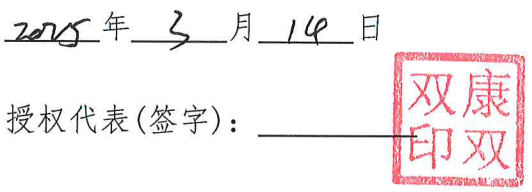 2025年3月14日
授权代表(签字):
康双
双印